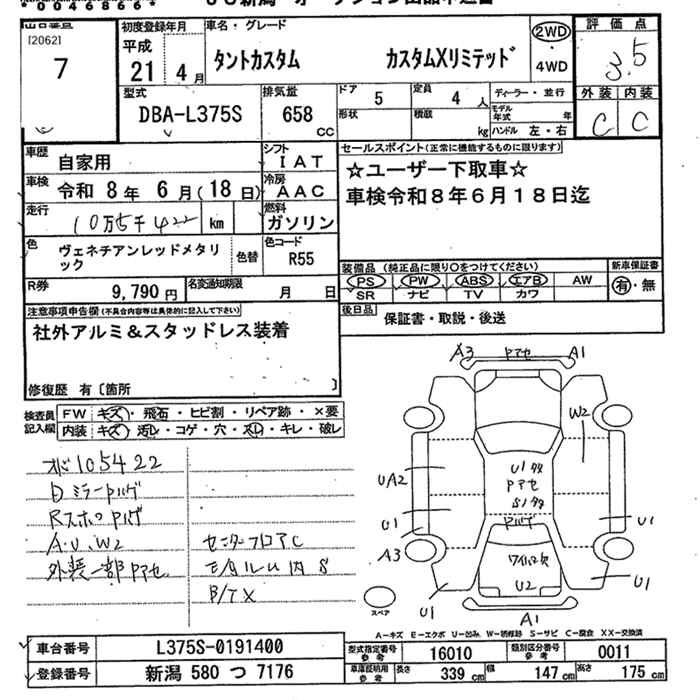 *0046866*
出品番号
[2062]
7
初度登録年月
平成
21年 4月
車名・グレード
タントカスタム カスタムXリミテッド
2WD
・4WD
評価点
3.5
外装 内装
C C
型式
DBA-L375S
排気量
658 cc
ドア 5
定員 4 人
形状
積載 kg
ディーラー・並行
モデル年式 年
ハンドル 左・右
車歴
自家用
シフト
IAT
車検
令和 8年 6月(18日)
冷房
AAC
走行
10万5千422 km
燃料
ガソリン
色
ヴェネチアンレッドメタリック
色替
色コード
R55
R券
9,790 円
名変通知期限
月 日
セールスポイント(正常に機能するものに限ります)
☆ユーザー下取車☆
車検令和8年6月18日迄
装備品(純正品に限り○をつけてください)
PS PW ABS エアB AW
SR ナビ TV カワ
新車保証書
有・無
後日品 保証書・取説・後送
注意事項申告欄(不具合内容等は具体的に記入して下さい)
社外アルミ&スタッドレス装着
修復歴 有〔箇所
検査員記入欄
FW キズ・飛石・ヒビ割・リペア跡・×要
内装 キズ・汚レ・コゲ・穴・スレ・キレ・破レ
オド105422
Dミラーロバゲ
A.U.W2
外装一部ロアセ
センターフロアC
モール内S
B/TX
A3 ロアセ A1
W2
UA2
U1
A3
U1
U1
U1
U1
U2
A1
スペア
A-キズ E-エクボ U-凹み W-補修跡 S-サビ C-腐食 XX-交換済
車台番号
L375S-0191400
型式指定番号 参考
16010
類別区分番号 参考
0011
登録番号
新潟 580 つ 7176
車庫証明用 参考
長さ 339 cm
幅 147 cm
高さ 175 cm